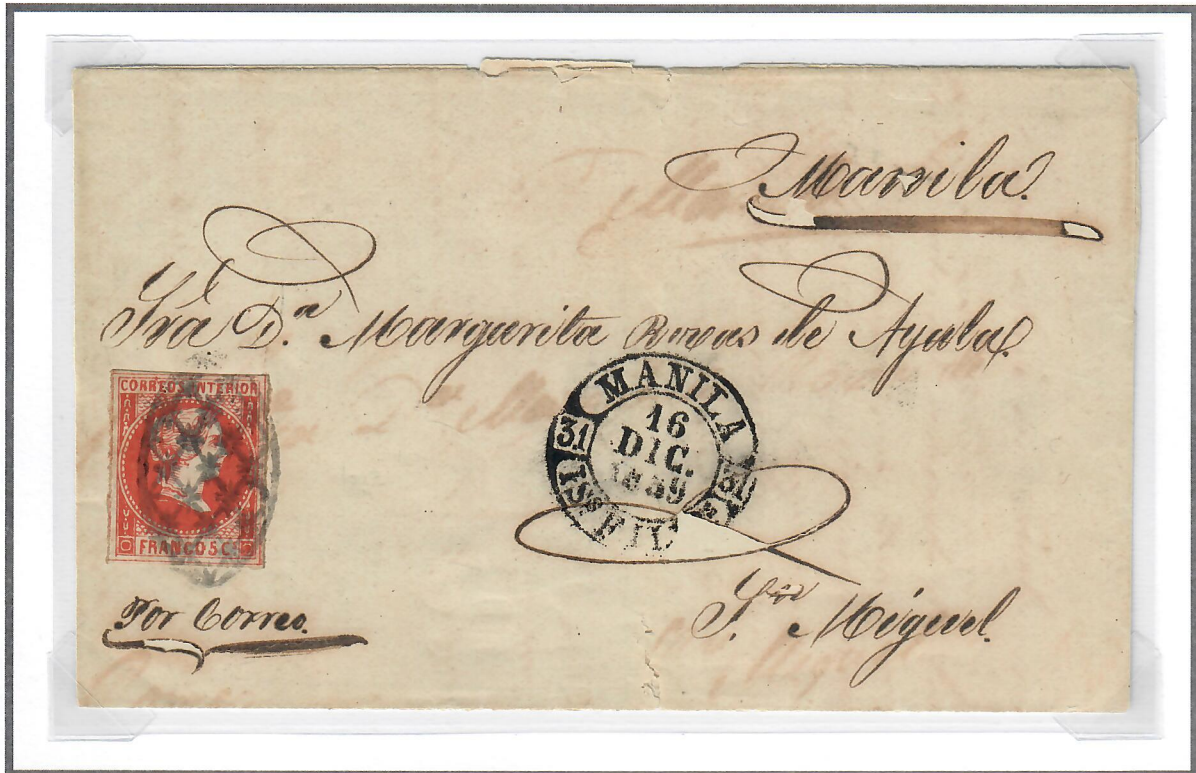 Manila.
Sra D.ª Margarita Roxas de Ayala.
CORREOS INTERIOR
FRANCO 5 C.
MANILA
16
DIC.
1859
31
31
Por Correo.
Sn Miguel.